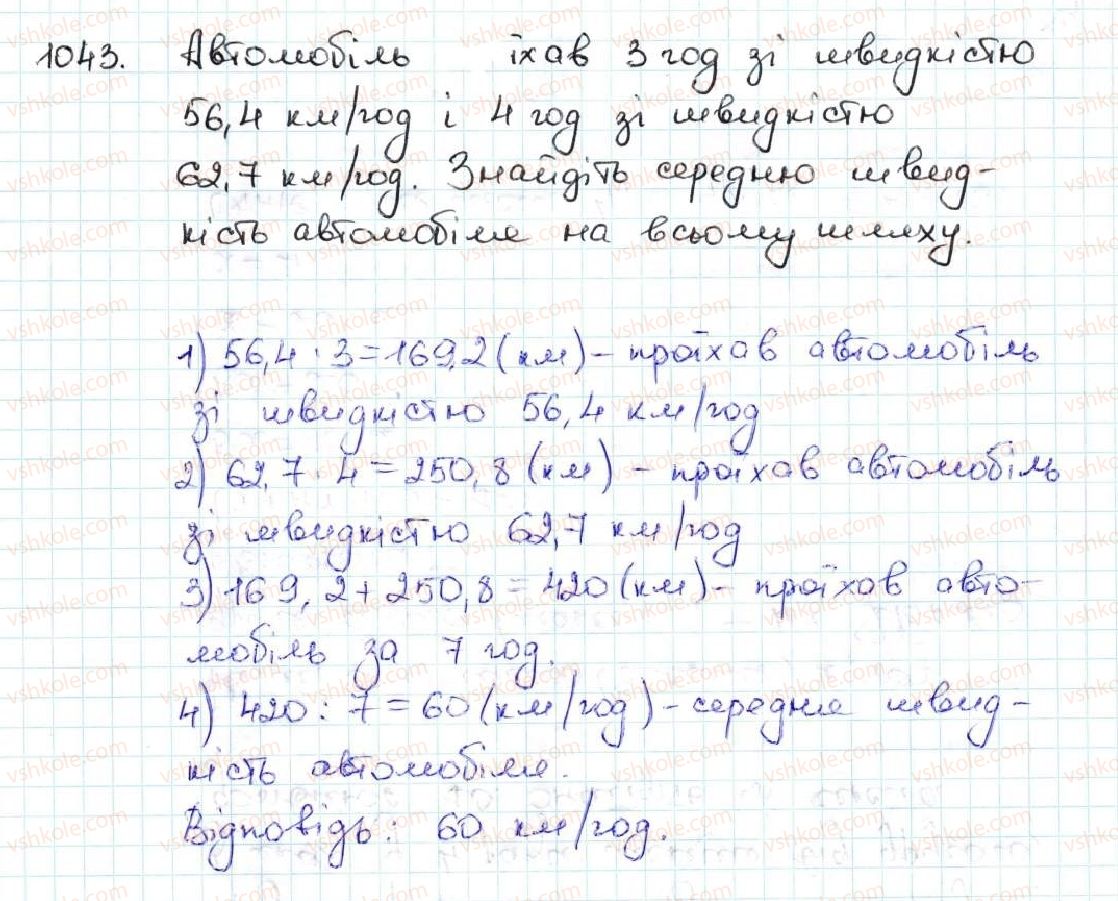 1043. Автомобіль їхав 3 год зі швидкістю
56,4 км/год і 4 год зі швидкістю
62,7 км/год. Знайдіть середню швид-
кість автомобіля на всьому шляху.
1) 56,4 · 3 = 169,2 (км) - проїхав автомобіль
зі швидкістю 56,4 км/год
2) 62,7 · 4 = 250,8 (км) - проїхав автомобіль
зі швидкістю 62,7 км/год
3) 169,2 + 250,8 = 420 (км) - проїхав авто-
мобіль за 7 год.
4) 420 : 7 = 60 (км/год) - середня швид-
кість автомобіля.
Відповідь: 60 км/год.